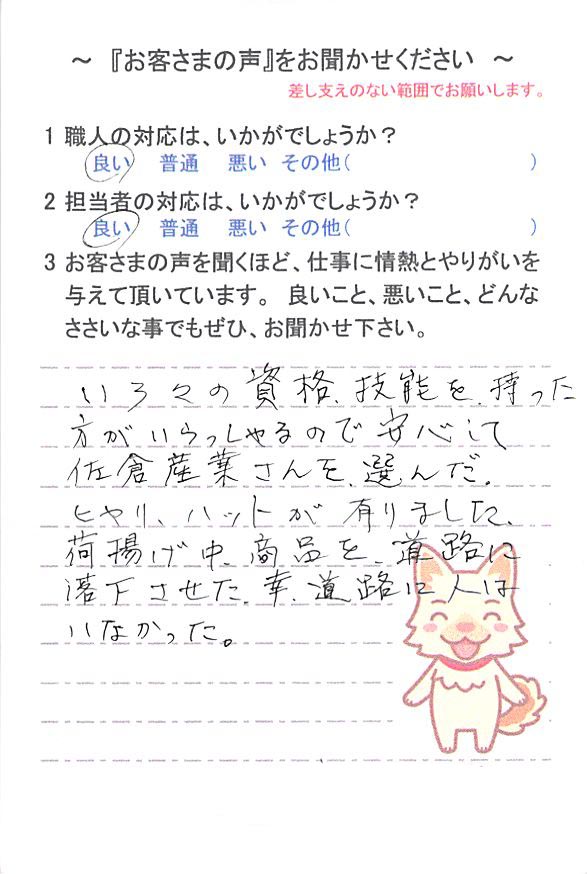 ～ 『お客さまの声』をお聞かせください ～
差し支えのない範囲でお願いします。
1 職人の対応は、いかがでしょうか？
良い 普通 悪い その他( )
2 担当者の対応は、いかがでしょうか？
良い 普通 悪い その他( )
3 お客さまの声を聞くほど、仕事に情熱とやりがいを
与えて頂いています。 良いこと、悪いこと、どんな
ささいな事でもぜひ、お聞かせ下さい。
いろ々の資格、技能を、持った
方がいらっしゃるので安心して
佐倉産業さんを、選んだ。
ヒヤリ、ハットが有りました、
荷揚げ中、商品を、道路に
落下させた、幸、道路に人は
いなかった。